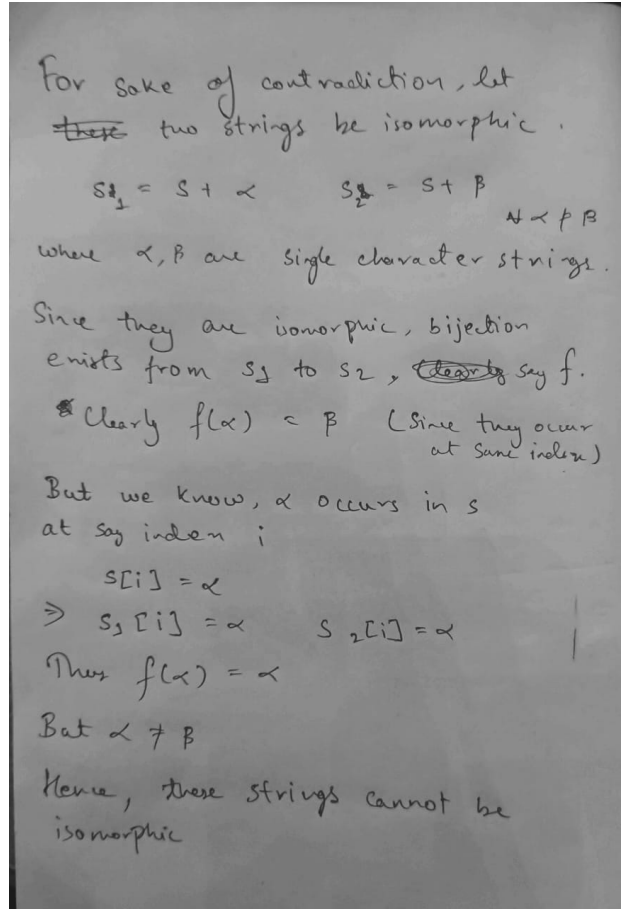 For sake of contradiction, let
these two strings be isomorphic.
S₁ = S + α S₂ = S + β
∀ α ≠ β
where α, β are single character strings.
Since they are isomorphic, bijection
exists from S1 to S2, Clearly say f.
Clearly f(α) = β (Since they occur
at same index)
But we know, α occurs in s
at say index i
S[i] = α
⇒ S₁[i] = α S₂[i] = α
Thus f(α) = α
But α ≠ β
Hence, these strings cannot be
isomorphic